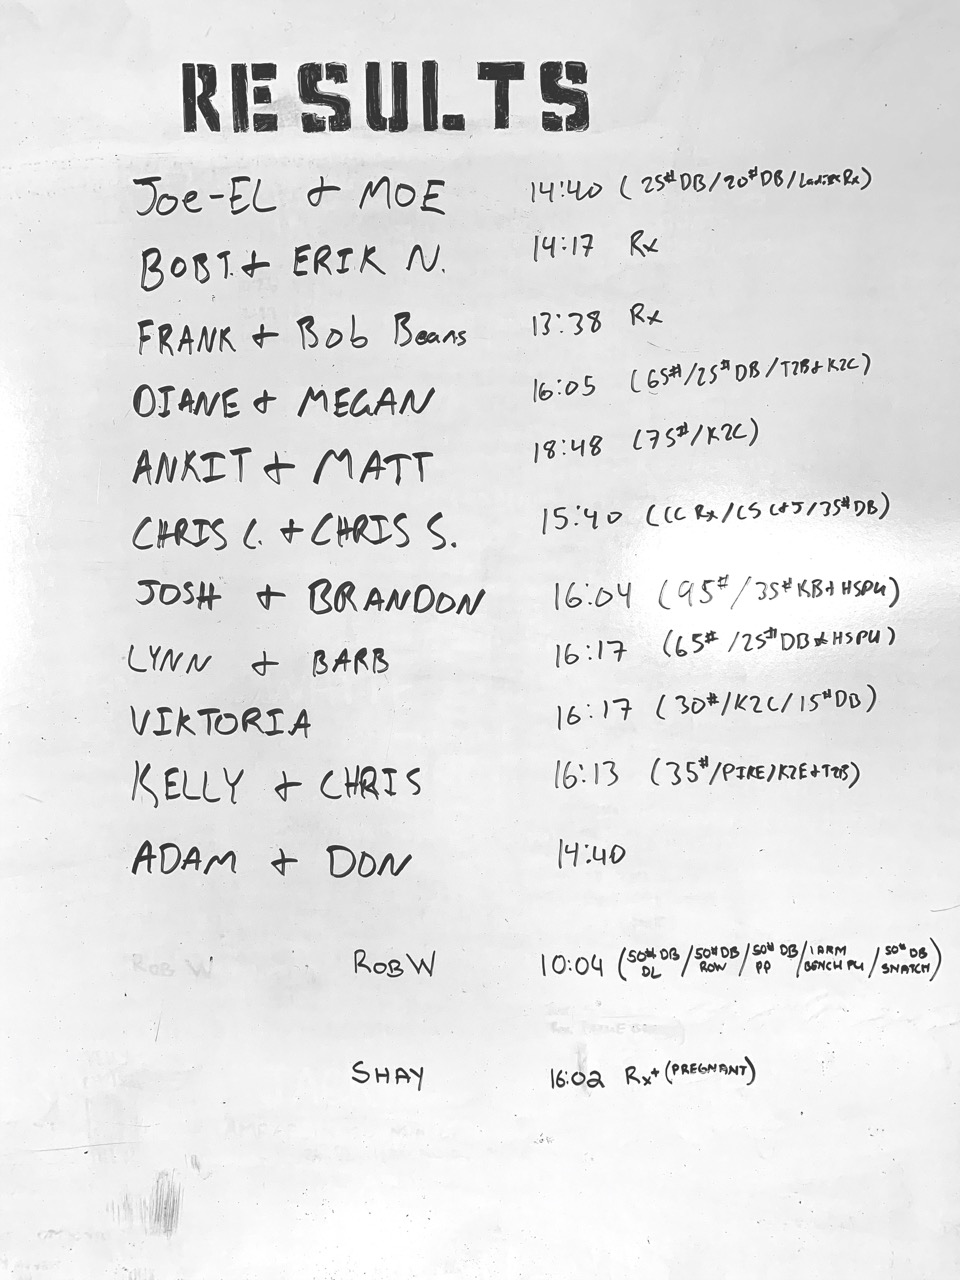 RESULTS
JOE-EL + MOE 14:40 (25# DB/20# DB/Ladies Rx)
BOB T. + ERIK N. 14:17 Rx
FRANK + Bob Beans 13:38 Rx
DIANE + MEGAN 16:05 (65#/25# DB/T2B+K2C)
ANKIT + MATT 18:48 (75#/K2C)
CHRIS C. + CHRIS S. 15:40 (CC Rx/CS C+J/35# DB)
JOSH + BRANDON 16:04 (95#/35# KB+HSPU)
LYNN + BARB 16:17 (65#/25# DB+HSPU)
VIKTORIA 16:17 (30#/K2C/15# DB)
KELLY + CHRIS 16:13 (35#/PIKE/K2E+T2B)
ADAM + DON 14:40
ROB W 10:04 (50# DB DL/50# DB ROW/50# DB PP/1 ARM BENCH PU/50# DB SNATCH)
SHAY 16:02 Rx+ (PREGNANT)